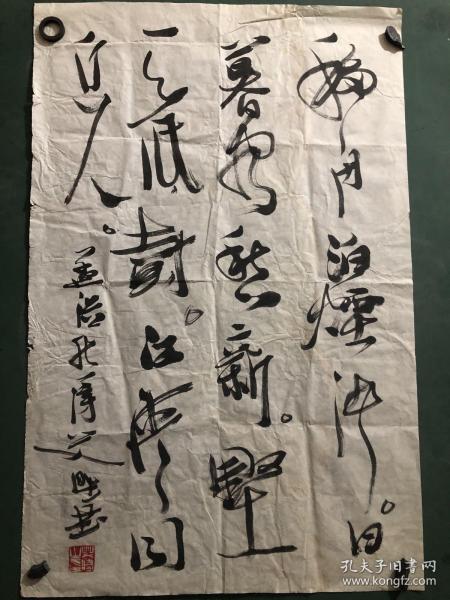 移舟泊煙渚。日
暮客愁新。野
天低樹。江清月
近人。
孟浩然
孔夫子旧书网
www.kongfz.com